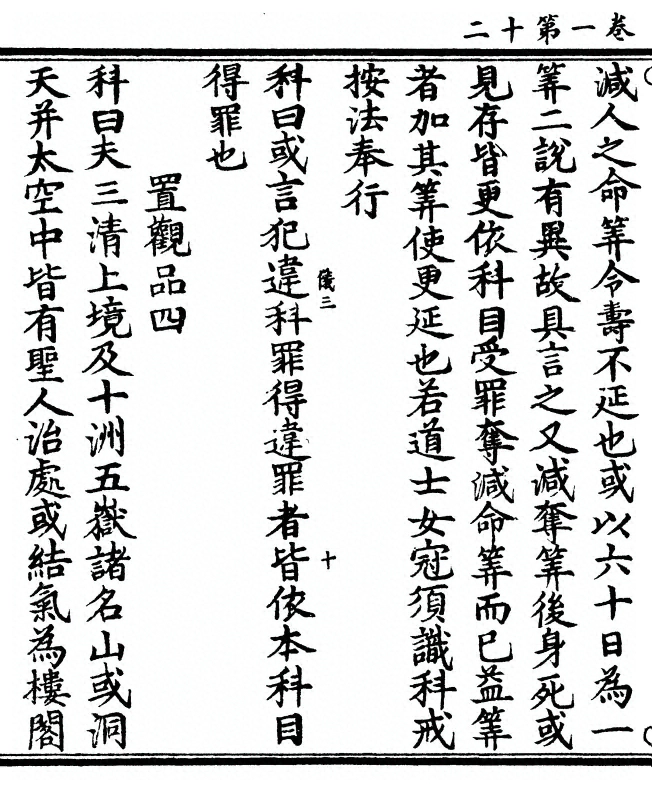 卷一第十二
減人之命筭令壽不延也或以六十日為一
筭二說有異故具言之又減奪筭後身死或
見存皆更依科目受罪奪減命筭而已益筭
者加其筭使更延也若道士女冠須識科戒
按法奉行
儀三
十
科曰或言犯違科罪得違罪者皆依本科目
得罪也
置觀品四
科曰夫三清上境及十洲五嶽諸名山或洞
天并太空中皆有聖人治處或結氣為樓閣